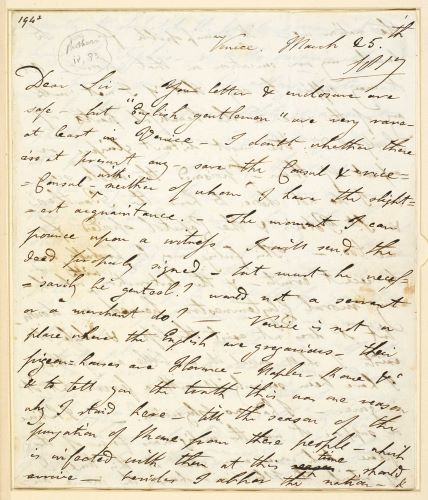 194²
Venice. March 25.th
1817
Dear Sir – Your letter & enclosure are
safe – but "English gentlemen" are very rare –
at least in Venice – I doubt whether there
are at present any – save the Consul & vice =
= Consul – with neither of whom I have the slight=
= est acquaintance. – The moment I can
pounce upon a witness – I will send the
deed properly signed – but must he neces=
= sarily be genteel? would not a servant
or a merchant do? Venice is not a
place where the English are gregarious – their
pigeon-houses are Florence – Naples – Rome &c
& to tell you the truth this was one reason
why I staid here – till the season of the
purgation of Rome from these people – which
is infected with them at this time – should
arrive – besides I abhor the nation – &